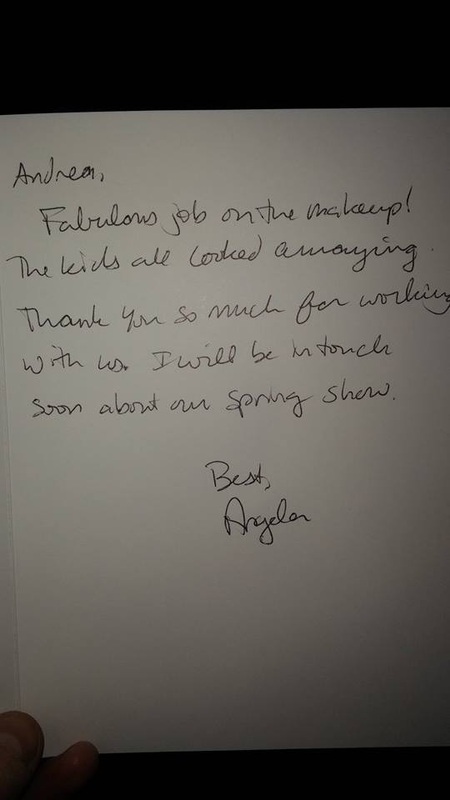 Andrea,
Fabulous job on the makeup!
The kids all looked amazing.
Thank you so much for working
with us. I will be in touch
soon about our spring show.
Best,
Angela